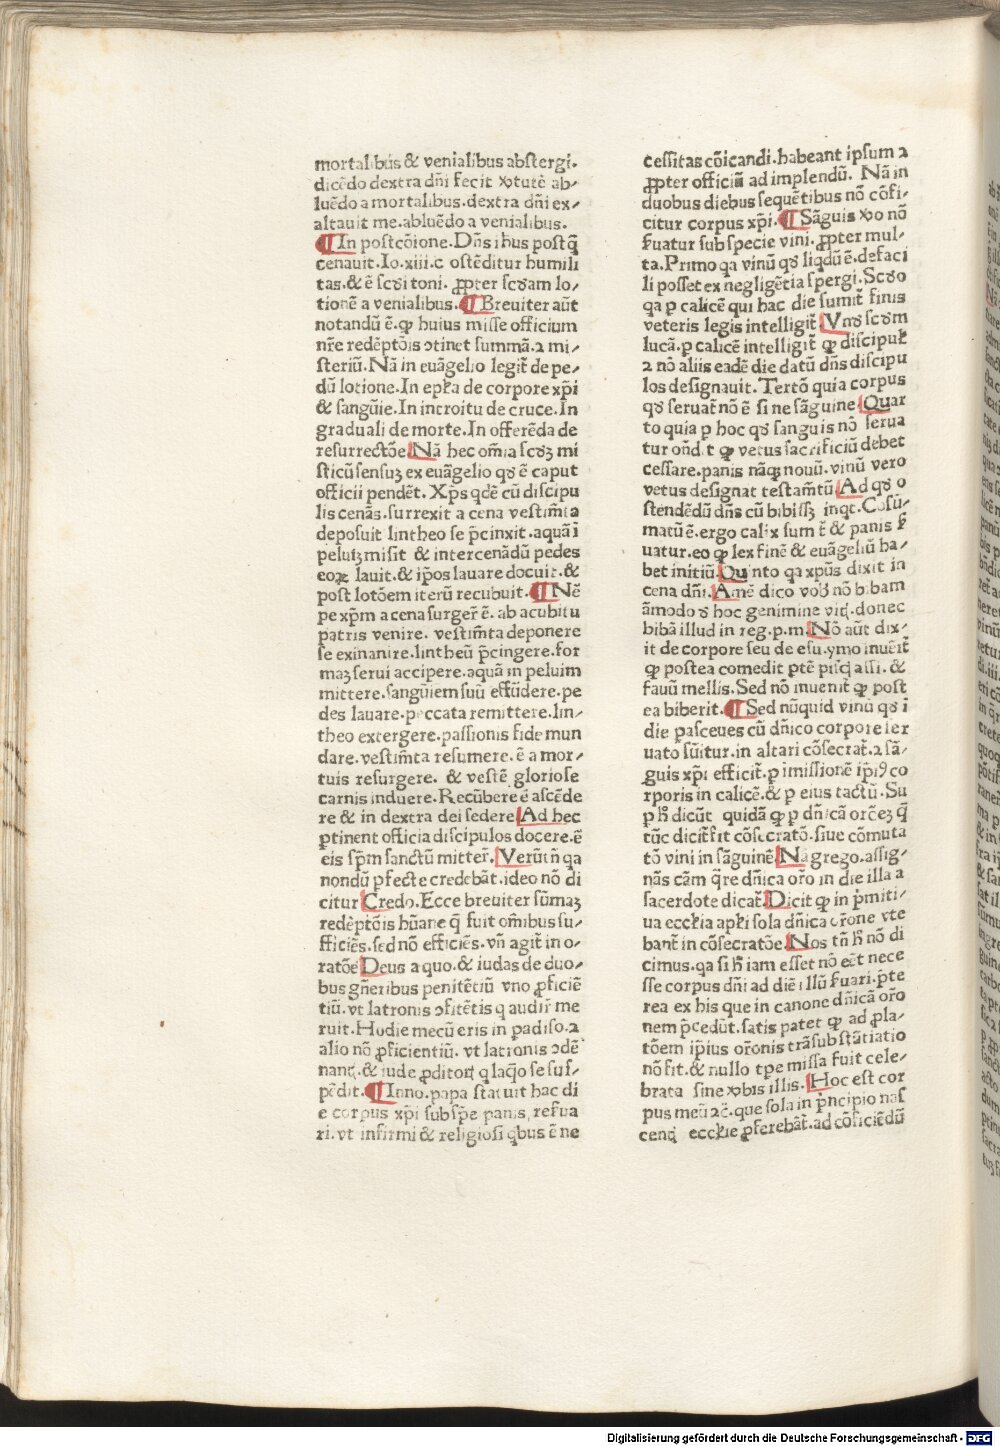 mortalibus & venialibus abstergi.
dicēdo dextra dn̄i fecit ꝟtutē ab⸗
luēdo a mortalibus.dextra dn̄i ex⸗
altauit me.abluēdo a venialibus.
¶In postcōione.Dn̄s ihus postq̄
cenauit.Io.xiii.c ostēditur humili
tas.& ē scd̄i toni. ꝓpter scd̄am lo⸗
tionē a venialibus.¶Breuiter aūt
notandū ē.ꝙ huius misse officium
nr̄e redēptōis ɔtinet summā.⁊ mi⸗
steriū.Nā in euāgelio legit̄ de pe⸗
dū lotione.In epl̄a de corpore xp̄i
& sangūie.In introitu de cruce.In
graduali de morte.In offerēda de
resurrectōe.Nā hec om̄ia scd̄ꝫ mi
sticū sensuꝫ ex euāgelio qd̄ ē caput
officii pendēt.Xp̄s qdē cū discipu
lis cenās.surrexit a cena vestim̄ta
deposuit lintheo se p̄cinxit.aquā ī
peluiꝫ misit & intercenādū pedes
eoꝝ lauit.& ip̄os lauare docuit.&
post lotōem iterū recubuit.¶Nē
pe xp̄m a cena surger̄ ē. ab acubitu
patris venire. vestim̄ta deponere
se exinanire.lintheū p̄cingere.for
maꝫ serui accipere.aquā in peluim
mittere.sangūiem suū effūdere.pe
des lauare.peccata remittere.lin⸗
theo extergere.passionis fide mun
dare.vestim̄ta resumere.ē a mor⸗
tuis resurgere. & vestē gloriose
carnis induere.Recūbere ē ascēde
re & in dextra dei sedere.Ad hec
ꝑtinent officia discipulos docere.ē
eis sp̄m sanctū mitter̄.Verūtn̄ qa
nondū ꝑfecte credebāt.ideo nō di
citur Credo.Ecce breuiter sūmaꝫ
redēptōis hūane q̄ fuit om̄ibus su⸗
fficiēs.sed nō efficiēs.vn̄ agit̄ in o⸗
ratōe Deus a quo.& iudas de duo⸗
bus gn̄eribus penitētiū vno ꝓficiē
tiū.vt latronis ɔfitētis q audir̄ me
ruit.Hodie mecū eris in padiso.⁊
alio nō ꝓficientiū. vt latronis ɔdē
nati.& iude ꝓditoris q laq̄o se sus⸗
pēdit.¶Inno.papa statuit hac di
e corpus xp̄i sub sp̄e panis reserua
ri.vt infirmi & religiosi qbus ē ne
cessitas cōicandi.habeant ipsum ⁊
ꝓpter officiū ad implendū. Nā in
duobus diebus sequētibus nō cōfi⸗
citur corpus xp̄i.¶Sāguis ꝟo nō
ẜuatur sub specie vini. ꝓpter mul⸗
ta.Primo qa vinū qd̄ liqdū ē.defaci
li posset ex negligētia spergi.Scd̄o
qa ꝑ calicē qui hac die sumit̄ finis
veteris legis intelligit̄.Vn̄ scd̄m
lucā.ꝑ calicē intelligit̄ ꝙ discipul̄
⁊ nō aliis eadē die datū dn̄s discipu
los designauit.Tertō quia corpus
qd̄ seruat̄ nō ē sine sāguine.Quar
to quia ꝑ hoc qd̄ sanguis nō serua
tur ondit̄ ꝙ vetus sacrificiū debet
cessare.panis nāqꝫ nouū.vinū vero
vetus designat testam̄tū.Ad qd̄ o
stendēdū dn̄s cū bibissꝫ inqt.Cōsū⸗
matū ē.ergo calix sumit̄ & panis ẜ
uatur.eo ꝙ lex finē & euāgeliū ha⸗
bet initiū.Quinto qa xpūs dixit in
cena dn̄i.Amē dico vob̄ nō bibam
āmodo d̄ hoc genimine vitis.donec
bibā illud in reg.p.m.Nō aūt dix⸗
it de corpore seu de esu.ymo inuēit̄
ꝙ postea comedit ꝑtē piscis assi.&
fauū mellis.Sed nō inuenit̄ ꝙ post
ea biberit.¶Sed nūquid vinū qd̄ ī
die pasceues cū dn̄ico corpore ẜer
uato sūitur.in altari cōsecrat̄.⁊ sā⸗
guis xp̄i efficit̄.ꝑ imissionē ip̄iꝰ co
rporis in calicē.& ꝑ eius tactū.Su
ꝑ hͦ dicūt quidā ꝙ ꝑ dn̄icā orōeꝫ q̄
tūc dicit̄ fit cōsecratō.siue cōmuta
tō vini in sāguinē.Nā grego.assig⸗
nās cām q̄re dn̄ica orō in die illa a
sacerdote dicat̄.Dicit ꝙ in p̄miti⸗
ua eccl̄ia apl̄i sola dn̄ica orōne vte
bant̄ in cōsecratōe.Nos tn̄ hͦ nō di
cimus.qa si hͦ iam esset nō eēt nece
sse corpus dn̄i ad diē illū ẜuari.p̄te
rea ex his que in canone dn̄icā orō
nem p̄cedūt.satis patet ꝙ ad ꝓla⸗
tōem ip̄ius orōnis trāsubstātiatio
nō fit.& nullo tꝑe missa fuit cele⸗
brata sine ꝟbis illis.Hoc est cor
pus meū ⁊c̄.que sola in p̄ncipio nas
centis eccl̄ie ꝓferebāt̄.ad cōficiēdū
Digitalisierung gefördert durch die Deutsche Forschungsgemeinschaft - DFG